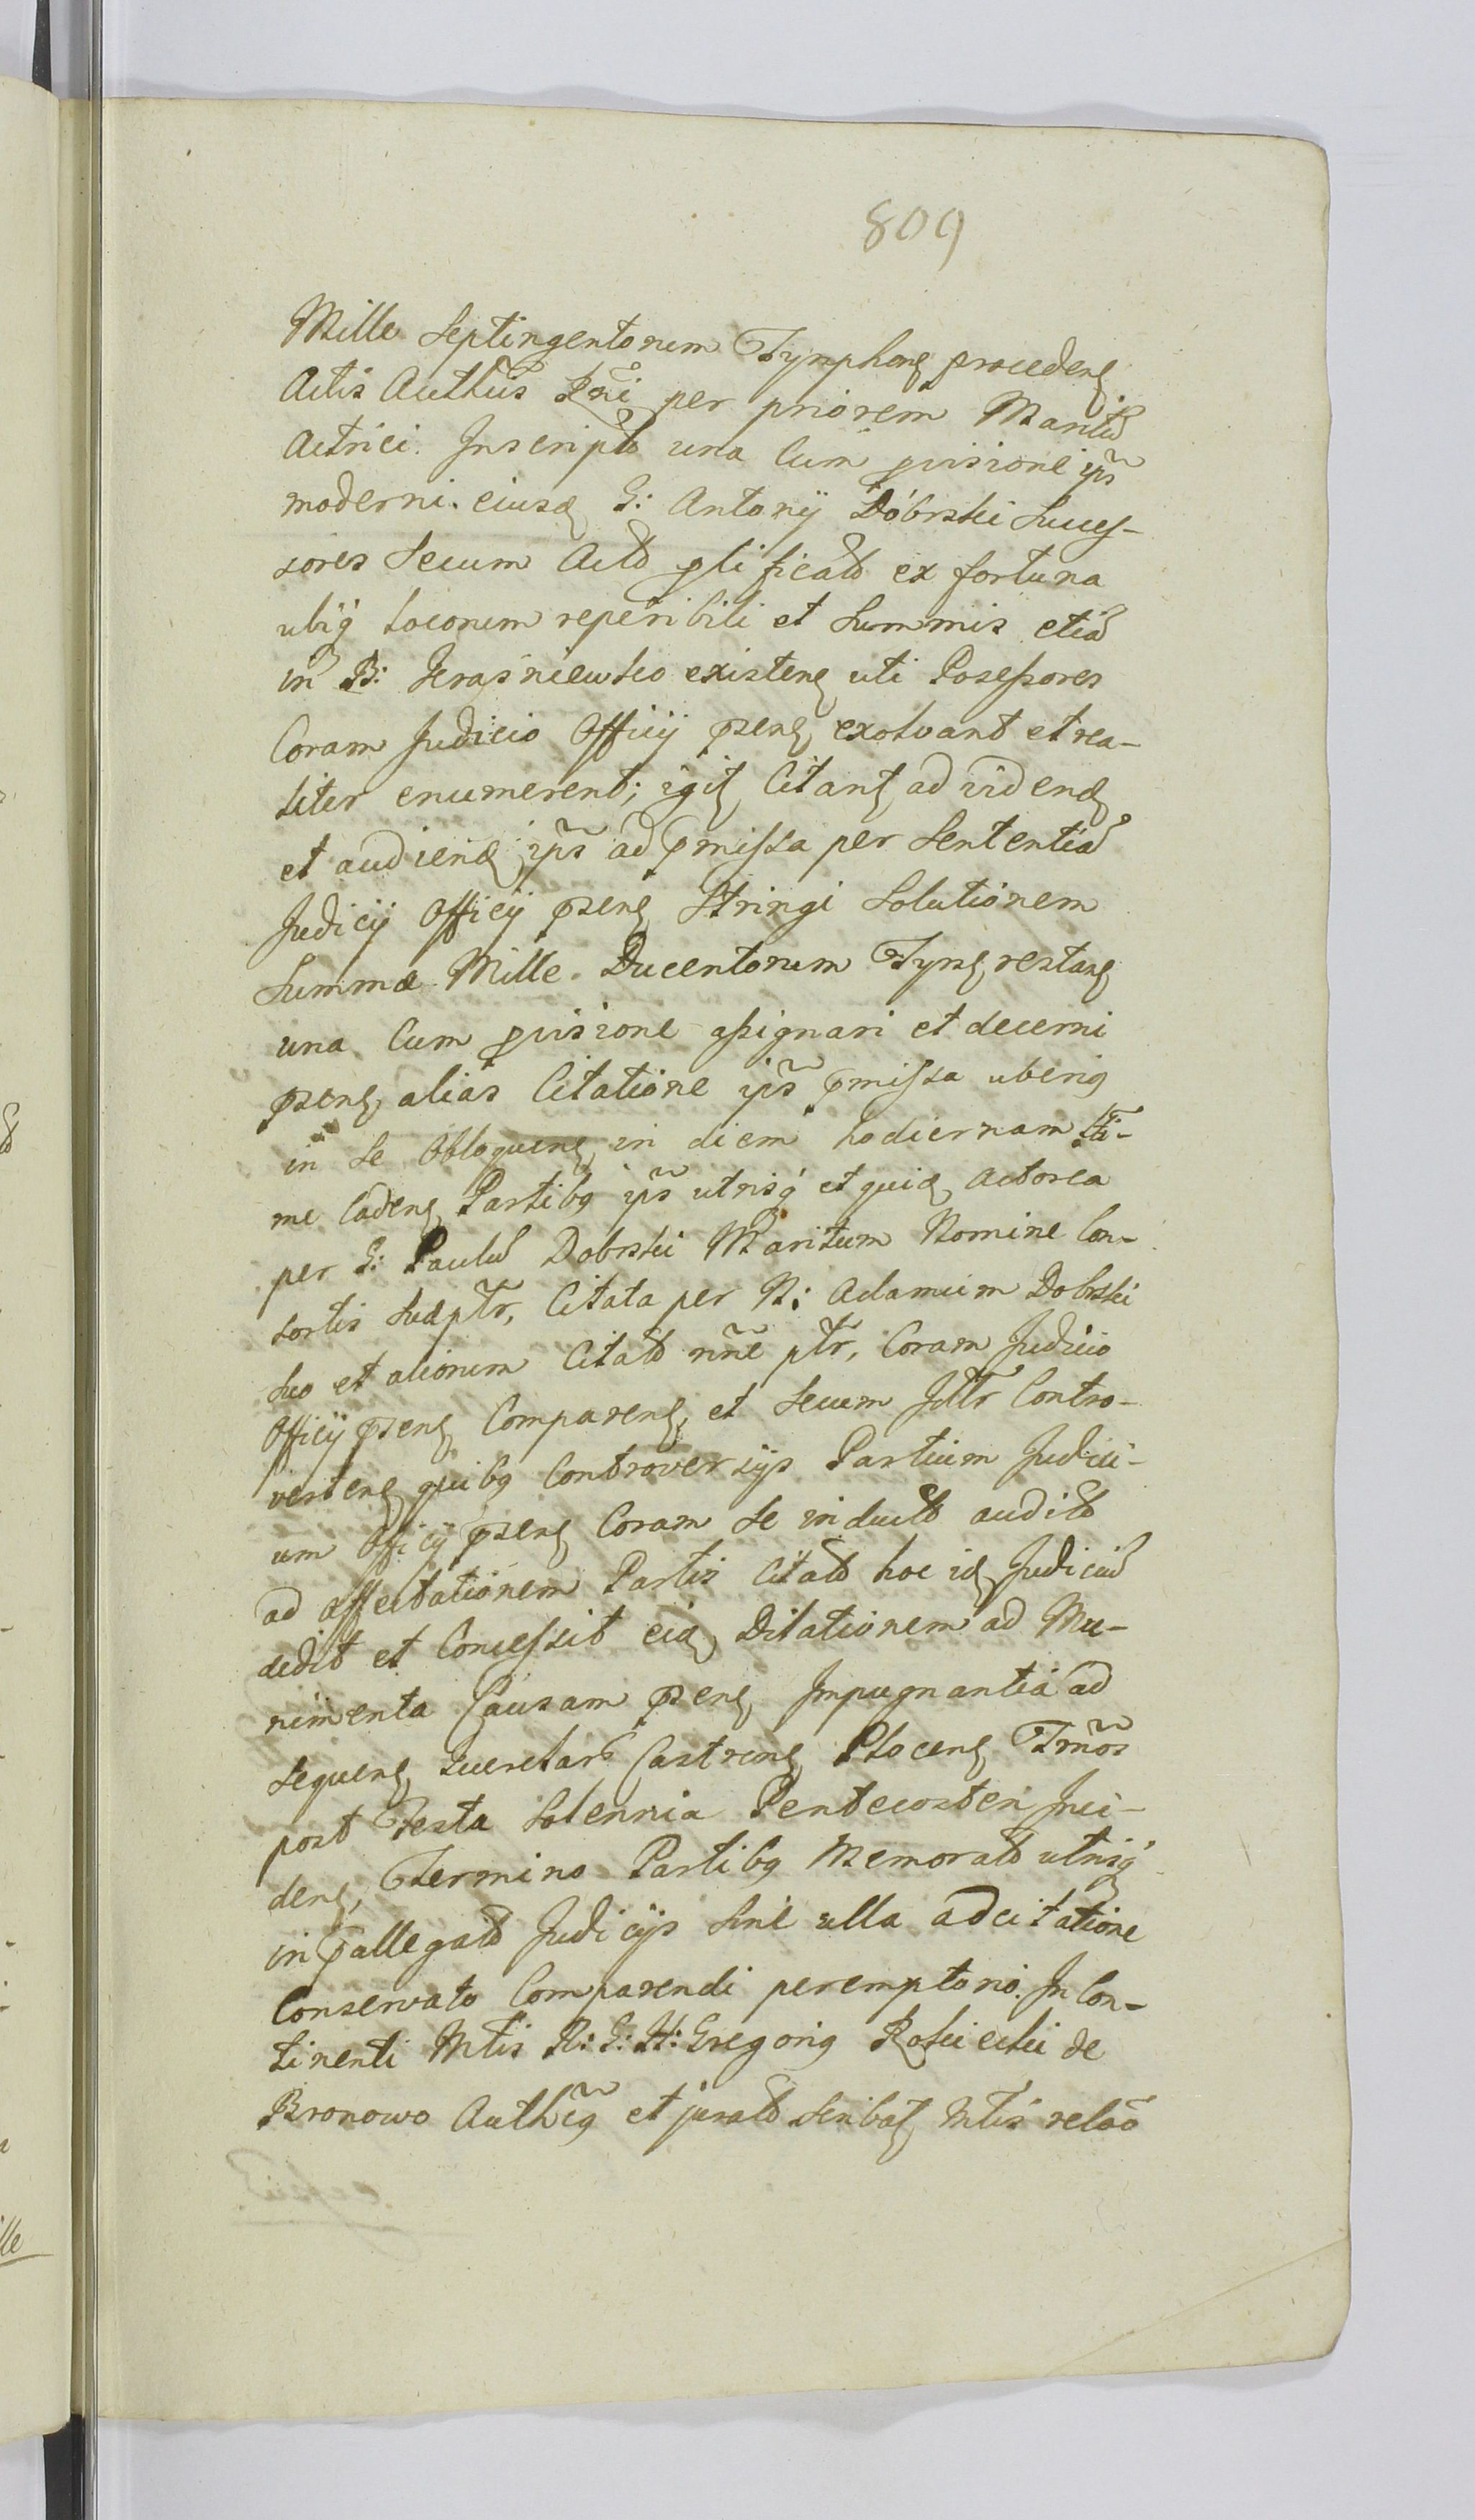 809
Mille Septingentorum Tymphonꝫ procedenꝫ
Actis Authꝰis Rñi per priorem Maritū
Actrici. Inscripto una Cum pvisione ip̃s
moderni eiusꝫ G: Antonij Dóbrski Succes-
sores Secum Actō qlificatō ex fortuna
ubiq̃ locorum reperibili et Summis etiā
in B: existenꝫ uti Poseßores
Coram Judicio Officij pꝛsenꝫ exolvant et rea-
liter enumerent; igiꝫ Citantꝫ ad videndꝫ
et audiendꝫ ip̃s ad pmissa per Sententiā
Judicij Officij pꝛsenꝫ Stringi Solutionem
Summæ Mille Ducentorum Tynfꝫ restanꝫ
una Cum pvisione aßignari et decerni
pꝛsenꝫ alias Citatione ip̃s pmissa uberiꝰ
in Se Obloquenꝫ in diem hodiernam
me Cadenꝫ Partibꝰ ip̃s utrisq̃ et quiꝫ Actorea
per G: Paulū Dobrski Maritum Nomine Con-
sortis Suæ ptr, Citata per N: Adamum Dobrski
Suo et aliorum Citatō nñe ptr, Coram Judicio
Officij pꝛsenꝫ Comparenꝫ, et Secum Jdtr Contro-
vertenꝫ quibꝰ Controversijs Partium Judici-
um Officij pꝛsenꝫ Coram Se inductō auditō
ad affectationem Partis Citatō hoc idꝫ Judiciū
dedit et Concessit eidꝫ Dilationem ad Mu-
nimenta Causam pꝛsenꝫ Impugnantia ad
Sequenꝫ Querelarꝫ Castrenꝫ Plocenꝫ Tr̃mos
post Festa Solennia Pentecosten Inci-
denꝫ, Termino Partibꝰ Memoratō utrisq̃
in pallegatō Judicijs Sine ulla adcitatione
Conservato Comparendi peremptorio. In Con-
tinenti Mtis R: G: H: Gregoriꝰ Rościcki de
Bronowo Authcꝰ et juratō Scribaꝫ Mtis relaõ